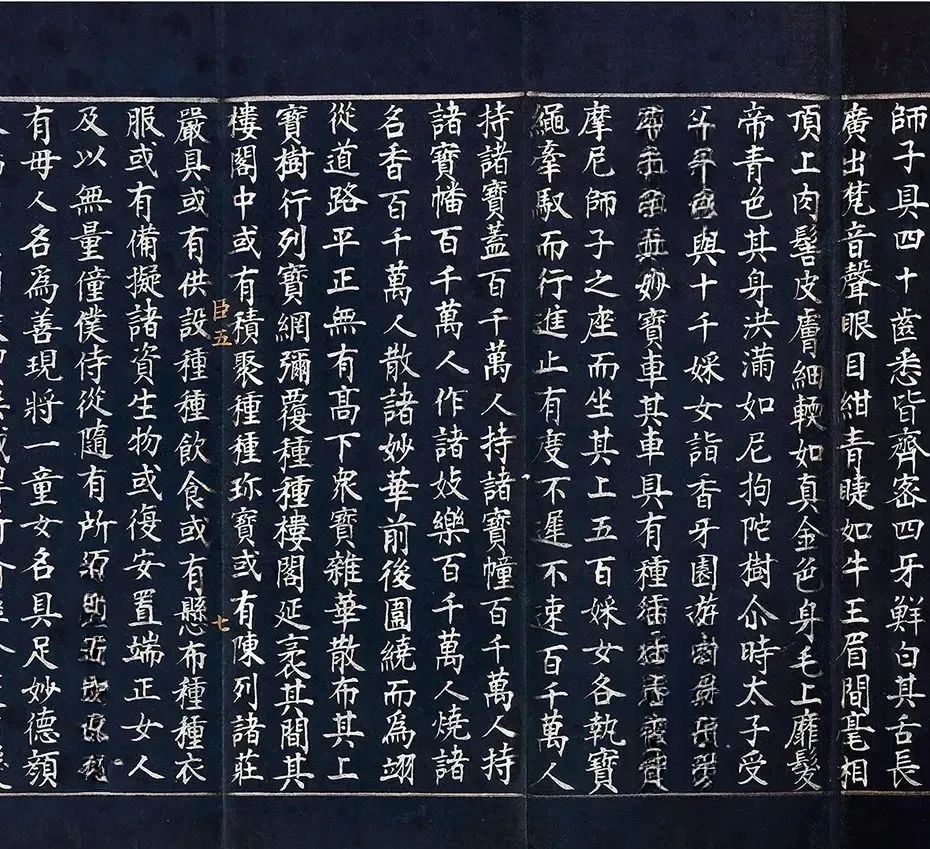 師子具四十齒悉皆齊密四牙鮮白其舌長
廣出梵音聲眼目紺青睫如牛王眉間毫相
頂上肉髻皮膚細輭如真金色身毛上靡髮
帝青色其身洪滿如尼拘陀樹尒時太子受
與十千婇女詣香牙園遊
妙寶車其車具有種
摩尼師子之座而坐其上五百婇女各執寶
繩牽馭而行進止有度不遲不速百千萬人
持諸寶蓋百千萬人持諸寶幢百千萬人持
諸寶幡百千萬人作諸妓樂百千萬人燒諸
名香百千萬人散諸妙華前後圍繞而為翊
從道路平正無有高下衆寶雜華散布其上
寶樹行列寶網彌覆種種樓閣延袤其間其
樓閣中或有積聚種種珎寶或有陳列諸莊
臣五 七
嚴具或有供設種種飲食或有懸布種種衣
服或有備擬諸資生物或復安置端正女人
及以無量僮僕侍從隨有所
有母人名為善現將一童女名具足妙德顏